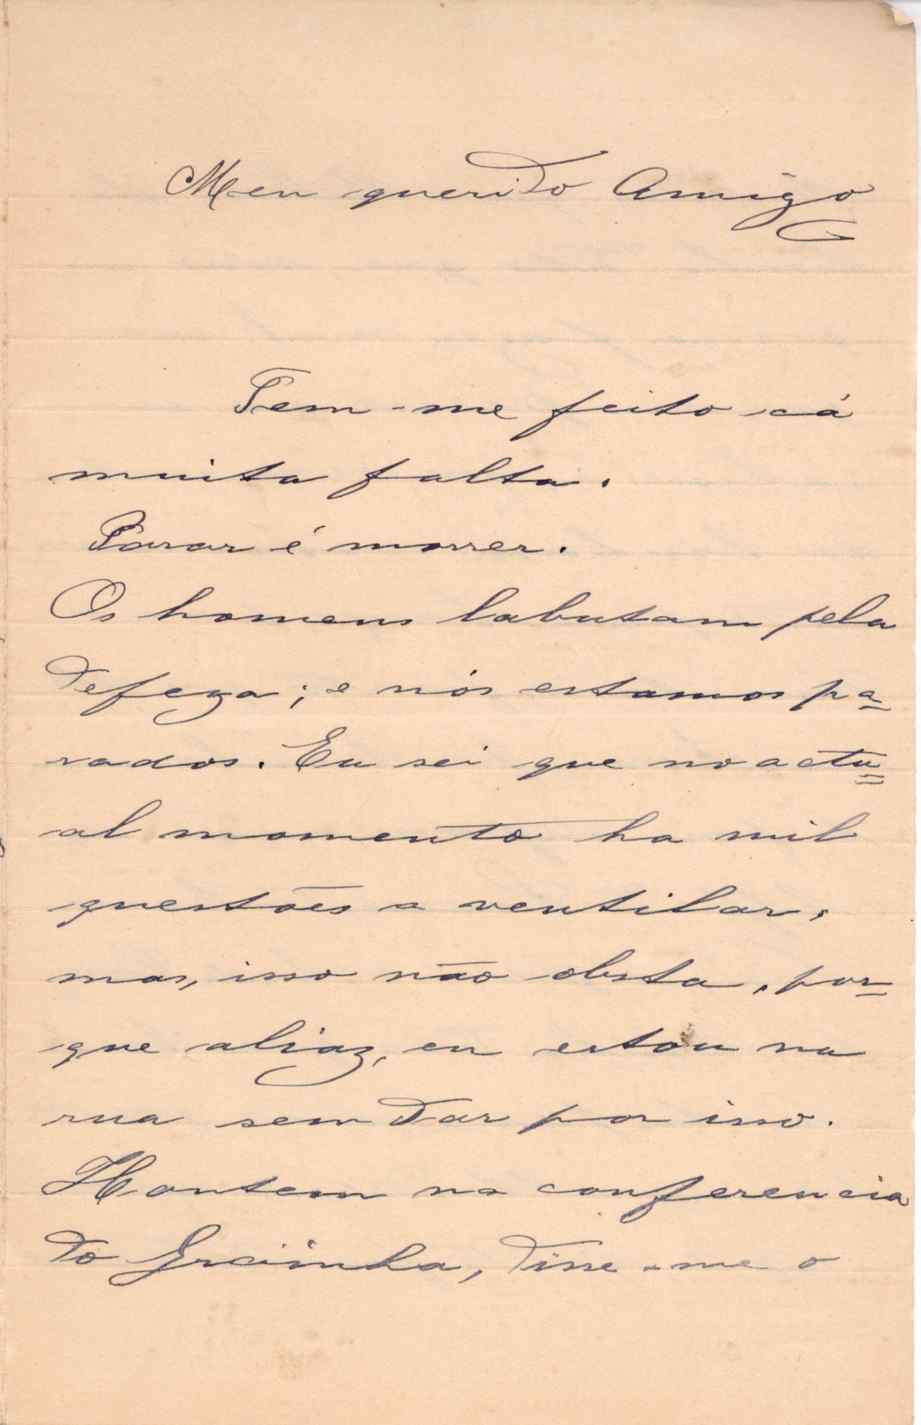 Meu querido Amigo
Tem-me feito cá
muita falta.
Parar é morrer.
Os homens labutam pela
defeza; e nós estamos pa=
rados. Eu sei que no actu=
al momento ha mil
questões a ventilar,
mas, isso não obsta, por=
que aliaz, eu estou na
rua sem dar por isso.
Hontem na conferencia
do Grainha, disse-me o